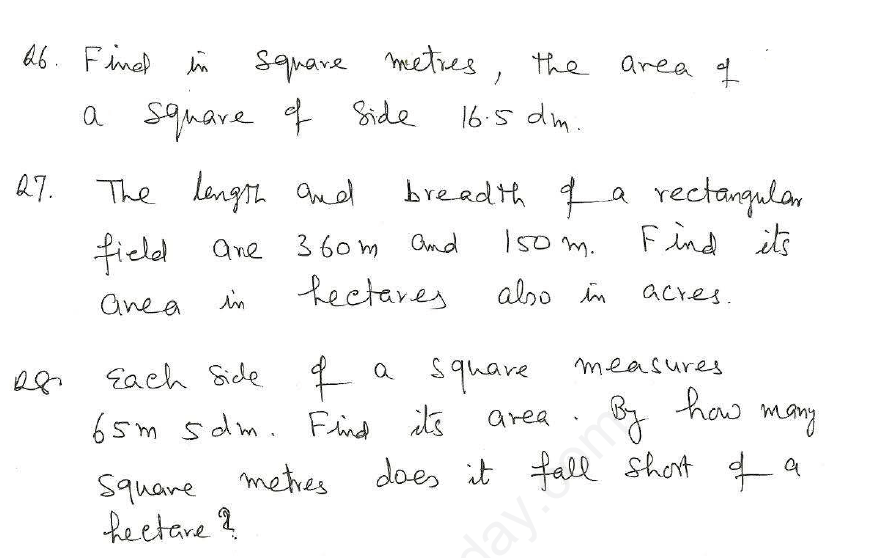 Q6. Find in square metres, the area of
a square of side 16.5 dm.
Q7. The length and breadth of a rectangular
field are 360m and 150 m. Find its
area in hectares also in acres.
Q8. Each side of a square measures
65m 5dm. Find its area. By how many
square metres does it fall short of a
hectare?
day.com